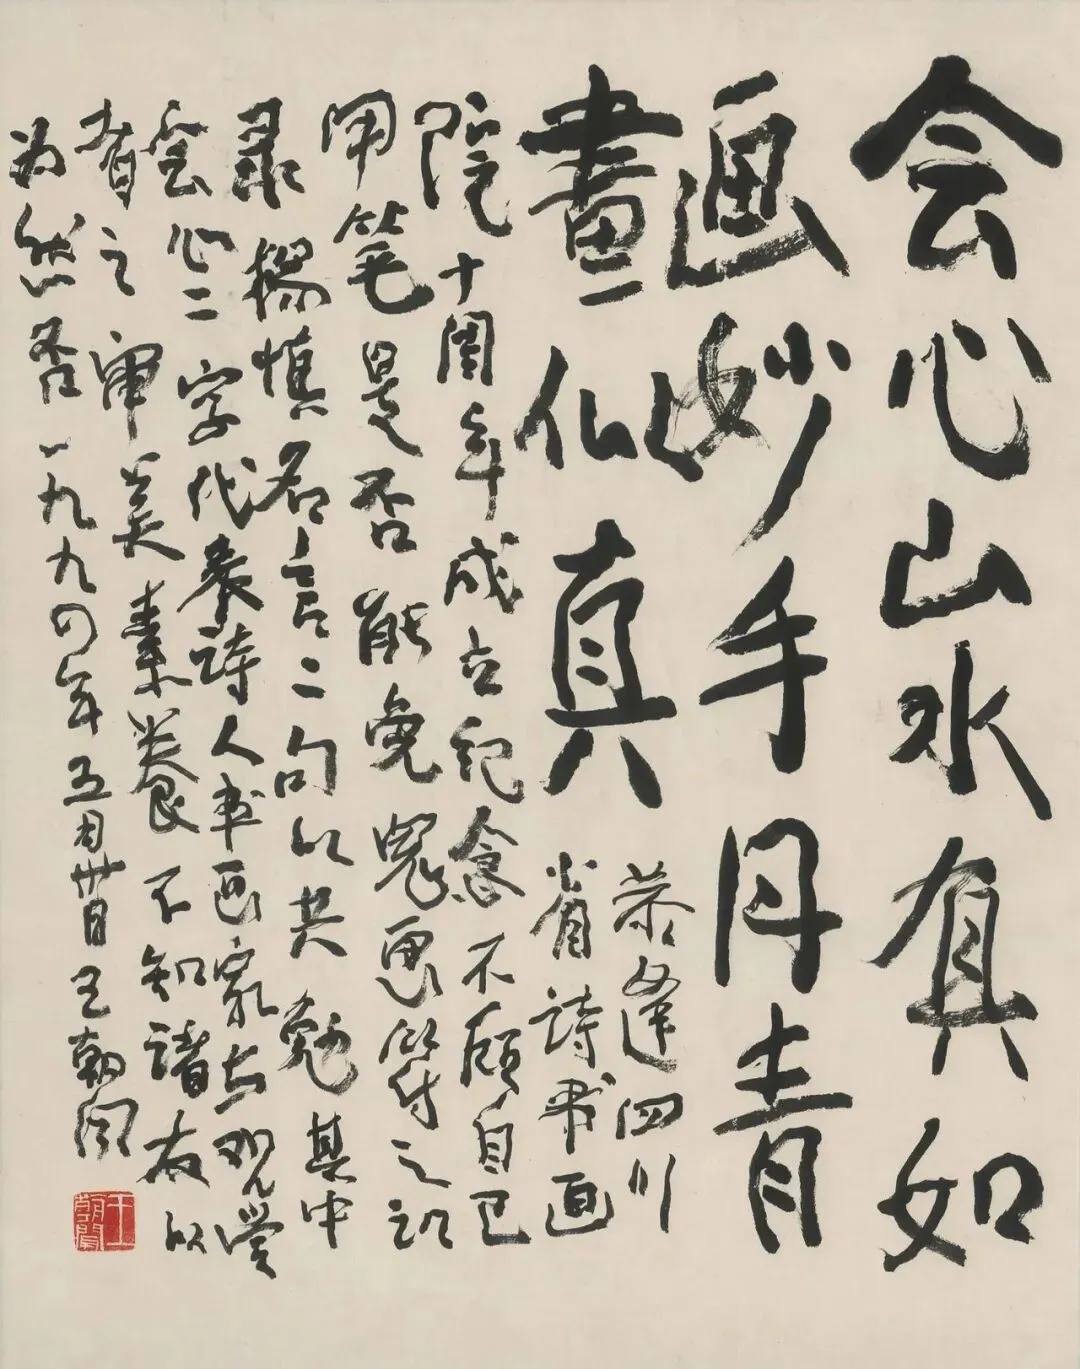 会心山水真如
画妙手丹青
畫似真
恭逢四川
省詩书画
院十周年成立纪念不顾自己
用笔是否能免鬼画符之讥
录楊慎名言二句以共勉其中
会心二字代表詩人书画家与观赏
者之审美素養不知諸友以
为然否一九九四年五月卅日王朝闻
王朝聞